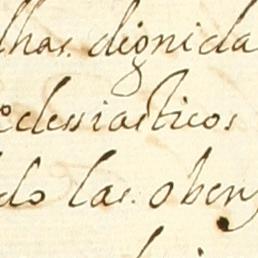 lhas. dignida
eclesiasticos
do las. oben